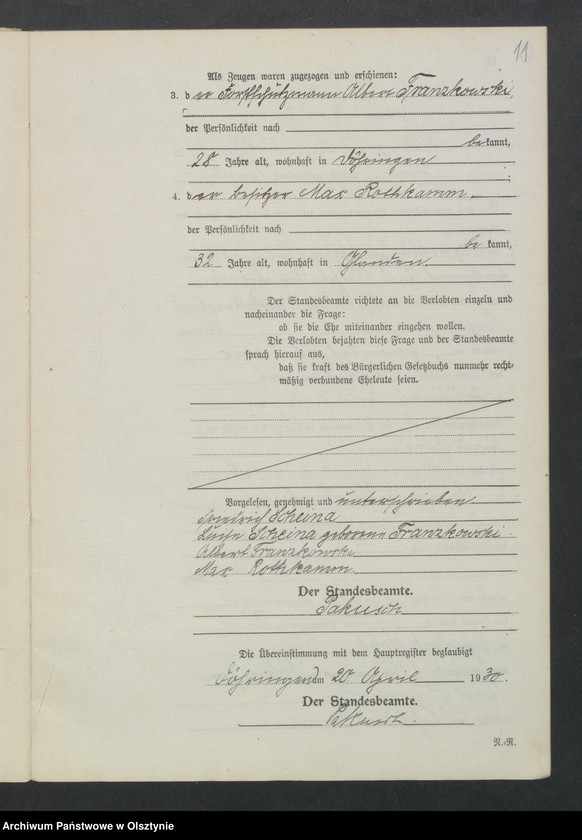 11
Als Zeugen waren zugezogen und erschienen:
3. der Forstschutzmann Albert Franzkowski,
der Persönlichkeit nach
bekannt,
28 Jahre alt, wohnhaft in Döhringen
;
4. der Besitzer Max Rothkamm
der Persönlichkeit nach
bekannt,
32 Jahre alt, wohnhaft in Glanden.
Der Standesbeamte richtete an die Verlobten einzeln und
nacheinander die Frage:
ob sie die Ehe miteinander eingehen wollen.
Die Verlobten bejahten diese Frage und der Standesbeamte
sprach hierauf aus,
daß sie kraft des Bürgerlichen Gesetzbuchs nunmehr recht-
mäßig verbundene Eheleute seien.
Vorgelesen, genehmigt und unterschrieben
Friedrich Scheina
Luise Scheina geborene Franzkowski.
Albert Franzkowski
Max Rothkamm
Der Standesbeamte.
Sakusch
Die Übereinstimmung mit dem Hauptregister beglaubigt
Döhringen am 20 April 1930.
Der Standesbeamte.
Sakusch
N.-R.
Archiwum Państwowe w Olsztynie